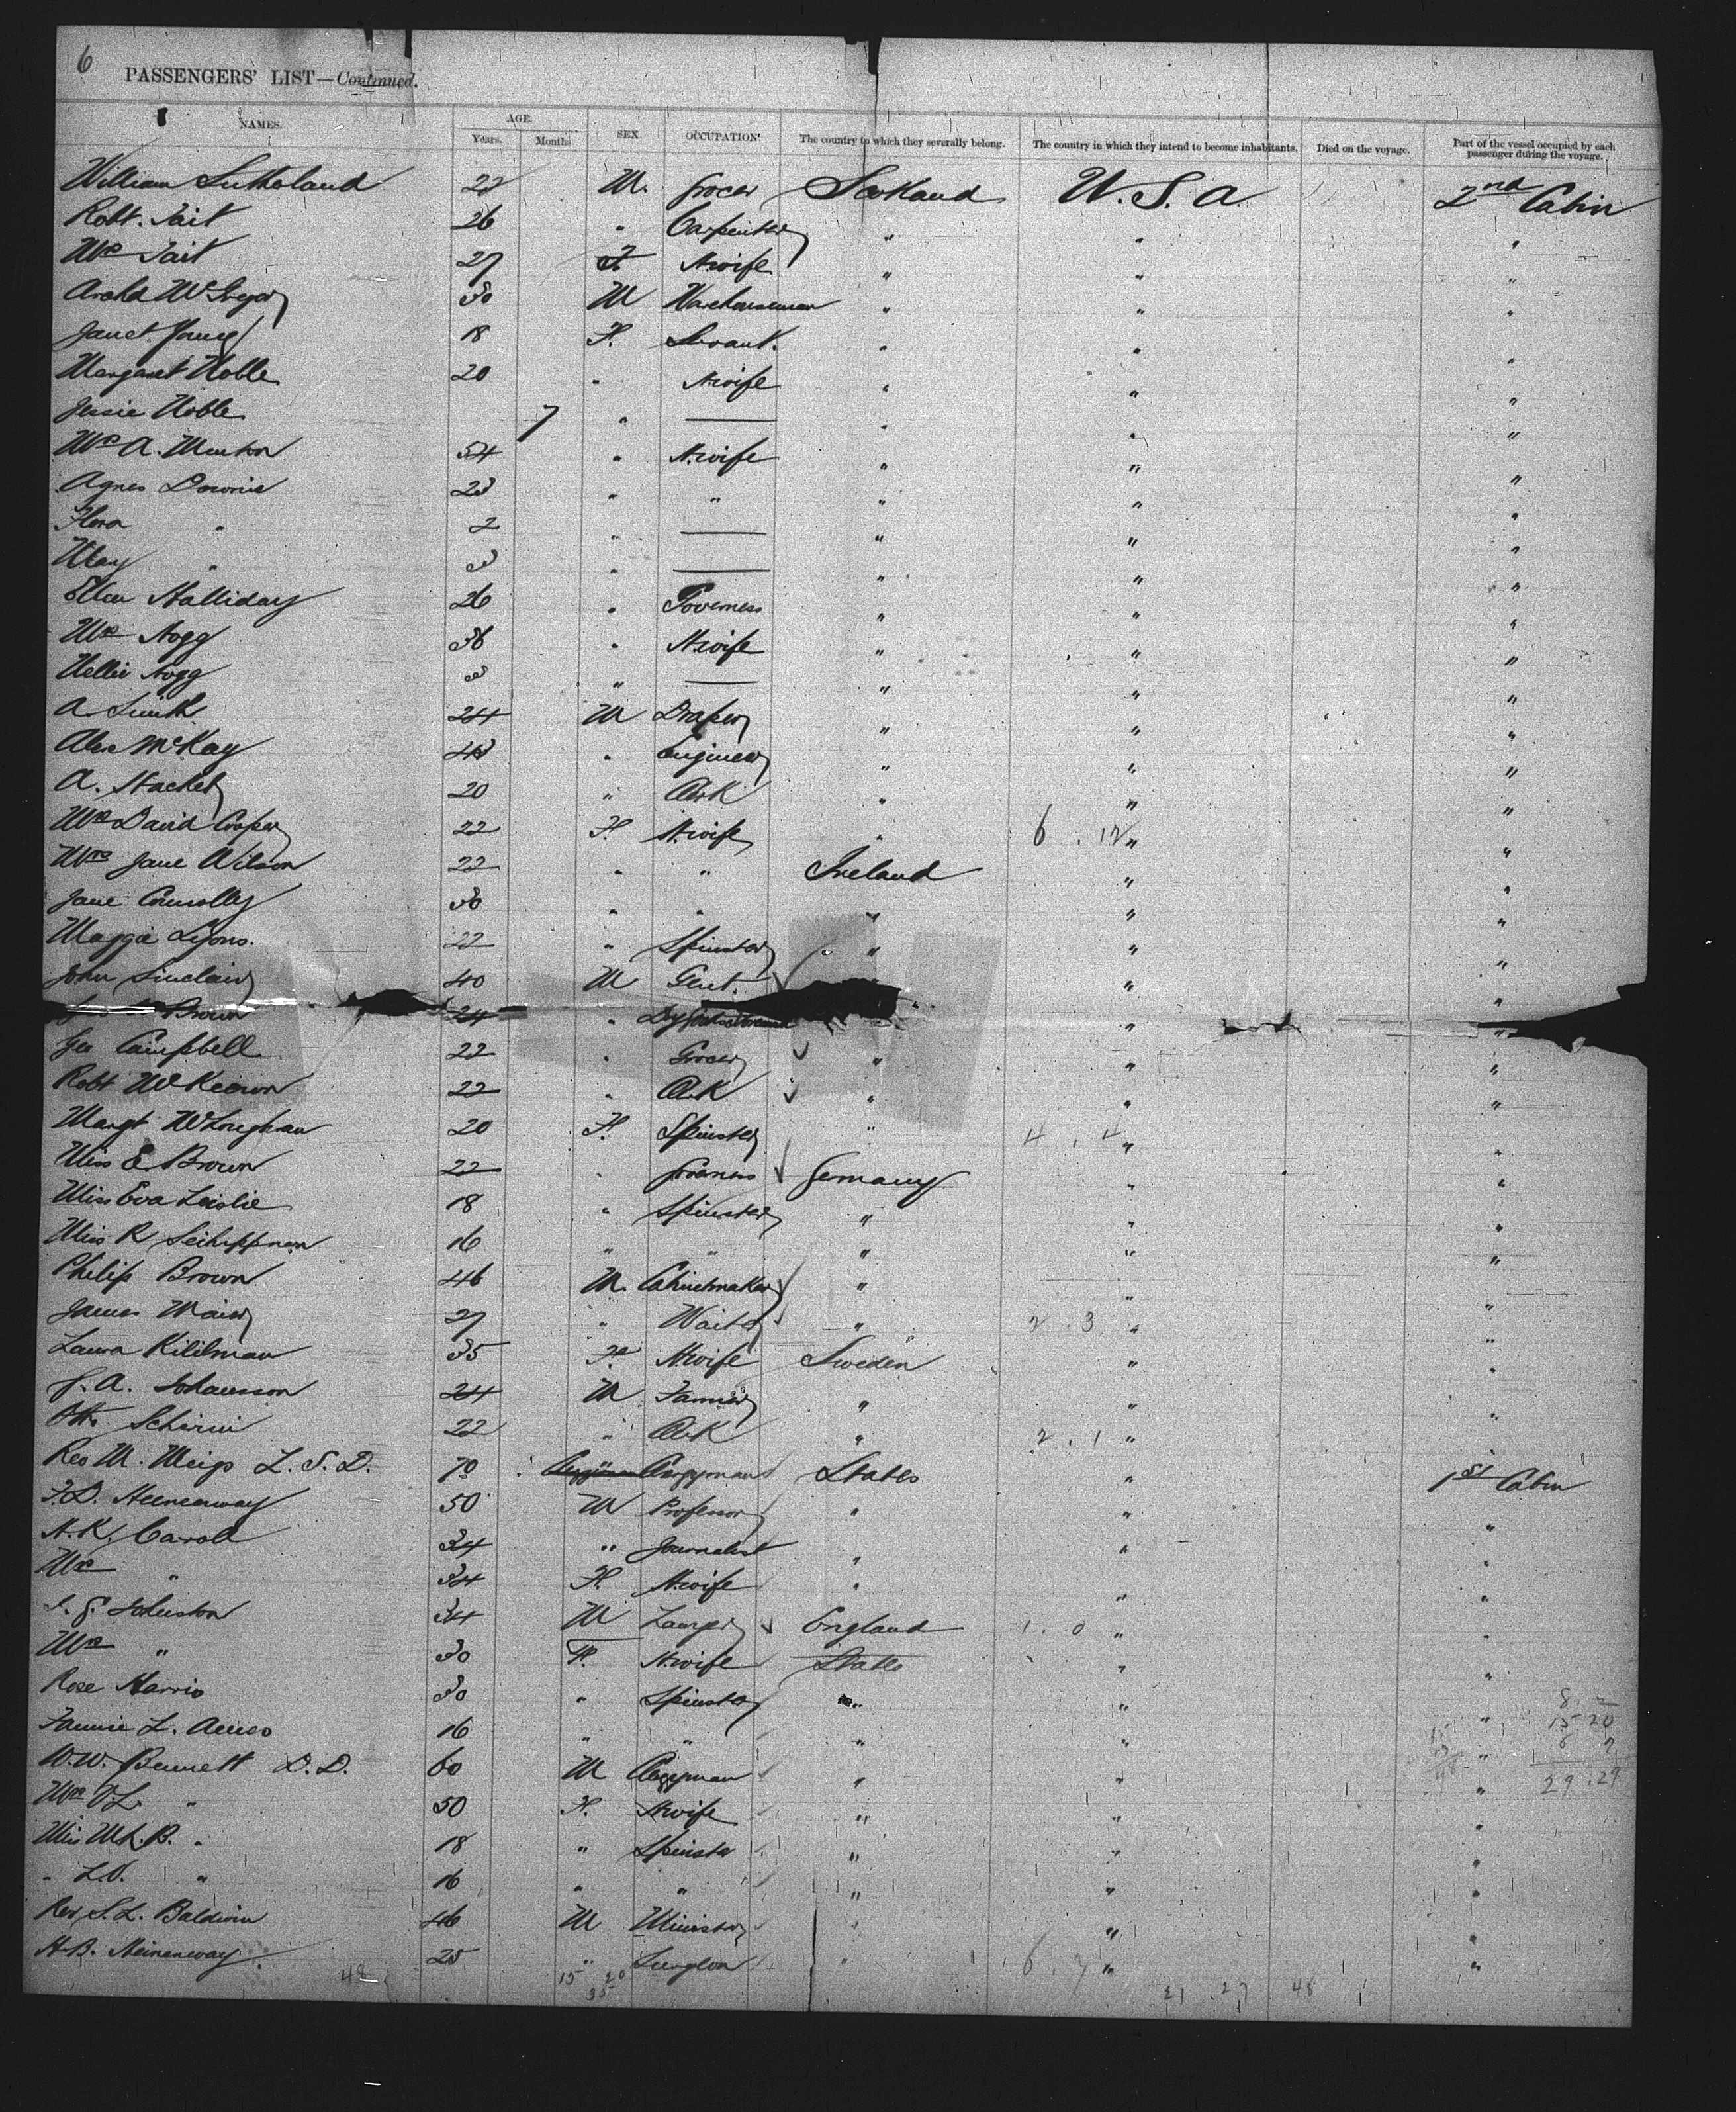 6
PASSENGERS' LIST—Continued.
NAMES. AGE. Years. Months SEX. OCCUPATION. The country to which they severally belong. The country in which they intend to become inhabitants. Died on the voyage. Part of the vessel occupied by each passenger during the voyage.
William Sutherland 22 M. Grocer Scotland U.S.A 2nd Cabin
Robt. Tait 26 " Carpenter " " "
Mrs Tait 27 F. H.wife " " "
Archd McGregor 30 M Warehouseman " " "
Janet Young 18 F. Servant. " " "
Margaret Noble 20 " H.wife " " "
Jessie Noble 7 " — " " "
Mrs A. 54 " H.wife " " "
Agnes Downie 23 " " " " "
Flora " 2 " — " " "
May " 3 " — " " "
Ellen Halliday 26 " Governess " " "
Mrs Hogg 36 " H.wife " " "
Nellie Hogg 3 " — " " "
A. Smith 24 M Draper " " "
Alex McKay 43 " Engineer " " "
A. Stacher 20 " Clerk " " "
Mrs David Cooper 22 F. H.wife " 6 . 12 " "
Mrs Jane Wilson 22 " " Ireland " "
Jane Connolly 30 " " " " "
Maggie Lyons. 22 " Spinster " " "
John Sinclair 40 M Gent. " "
Brown 24 " " "
Geo Campbell 22 " Grocer " " "
Robt McKeown 22 " Clerk " " "
Margt McLoughan 20 F. Spinster " 4 . 4 " "
Miss E. Brown 22 " Governess Germany " "
Miss Eva Leislie 18 " Spinster " " "
Miss R Schippman 16 " " " " "
Philip Brown 46 M. Cabinetmaker " " "
James Mair 27 " Waiter " 2 . 3 " "
Laura Kililman 35 F. H.wife Sweden " "
J. A. Johansson 24 M Farmer " " "
Otto 22 " Clerk " 2 . 1 "
Rev M. Meigs L.S.D. 70 Clergyman States " 1st Cabin
F.D. Hemenway 50 M Professor " " "
H.K. Carroll 34 " Journalist " " "
Mrs " 34 F. H.wife " " "
Johnston 34 M Lawyer England 1 . 0 " "
Mrs " 30 F. H.wife States " "
Rose Harris 30 " Spinster " " "
Fannie L. Ames 16 " " " " "
W.W. Bennett D.D. 60 M Clergyman " " "
Mrs " 50 F. H.wife " " "
Miss " 18 " Spinster " " "
" " 16 " " " " "
Rev S.L. Baldwin 46 M Minister " " "
H.B. Hemenway 25 " Surgeon " 6 . 7 " "
8 . 2
15 20
6 7
29 . 29
48 15 20
35
21 . 27 48